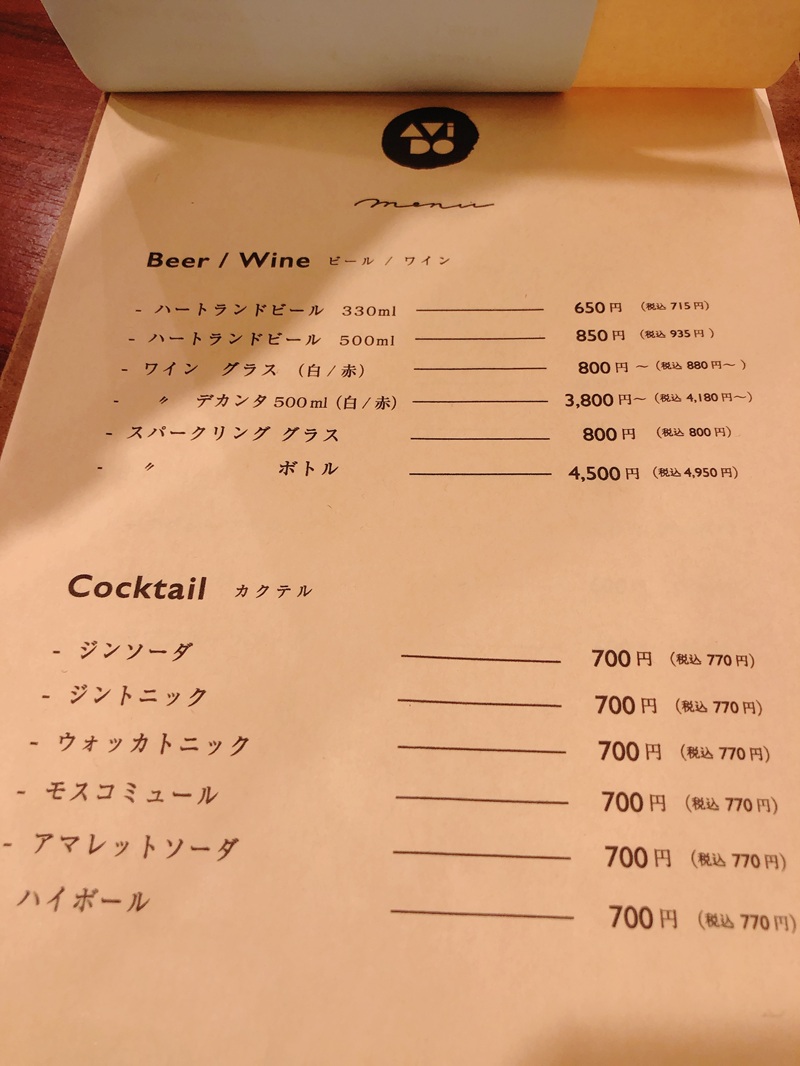 AVi
DO
menu
Beer / Wine ビール / ワイン
- ハートランドビール 330ml 650円 (税込 715円)
- ハートランドビール 500ml 850円 (税込 935円)
- ワイン グラス (白/赤) 800円~ (税込 880円~)
- 〃 デカンタ 500ml (白/赤) 3,800円~ (税込 4,180円~)
- スパークリング グラス 800円 (税込 800円)
- 〃 ボトル 4,500円 (税込 4,950円)
Cocktail カクテル
- ジンソーダ 700円 (税込 770円)
- ジントニック 700円 (税込 770円)
- ウォッカトニック 700円 (税込 770円)
- モスコミュール 700円 (税込 770円)
- アマレットソーダ 700円 (税込 770円)
ハイボール 700円 (税込 770円)